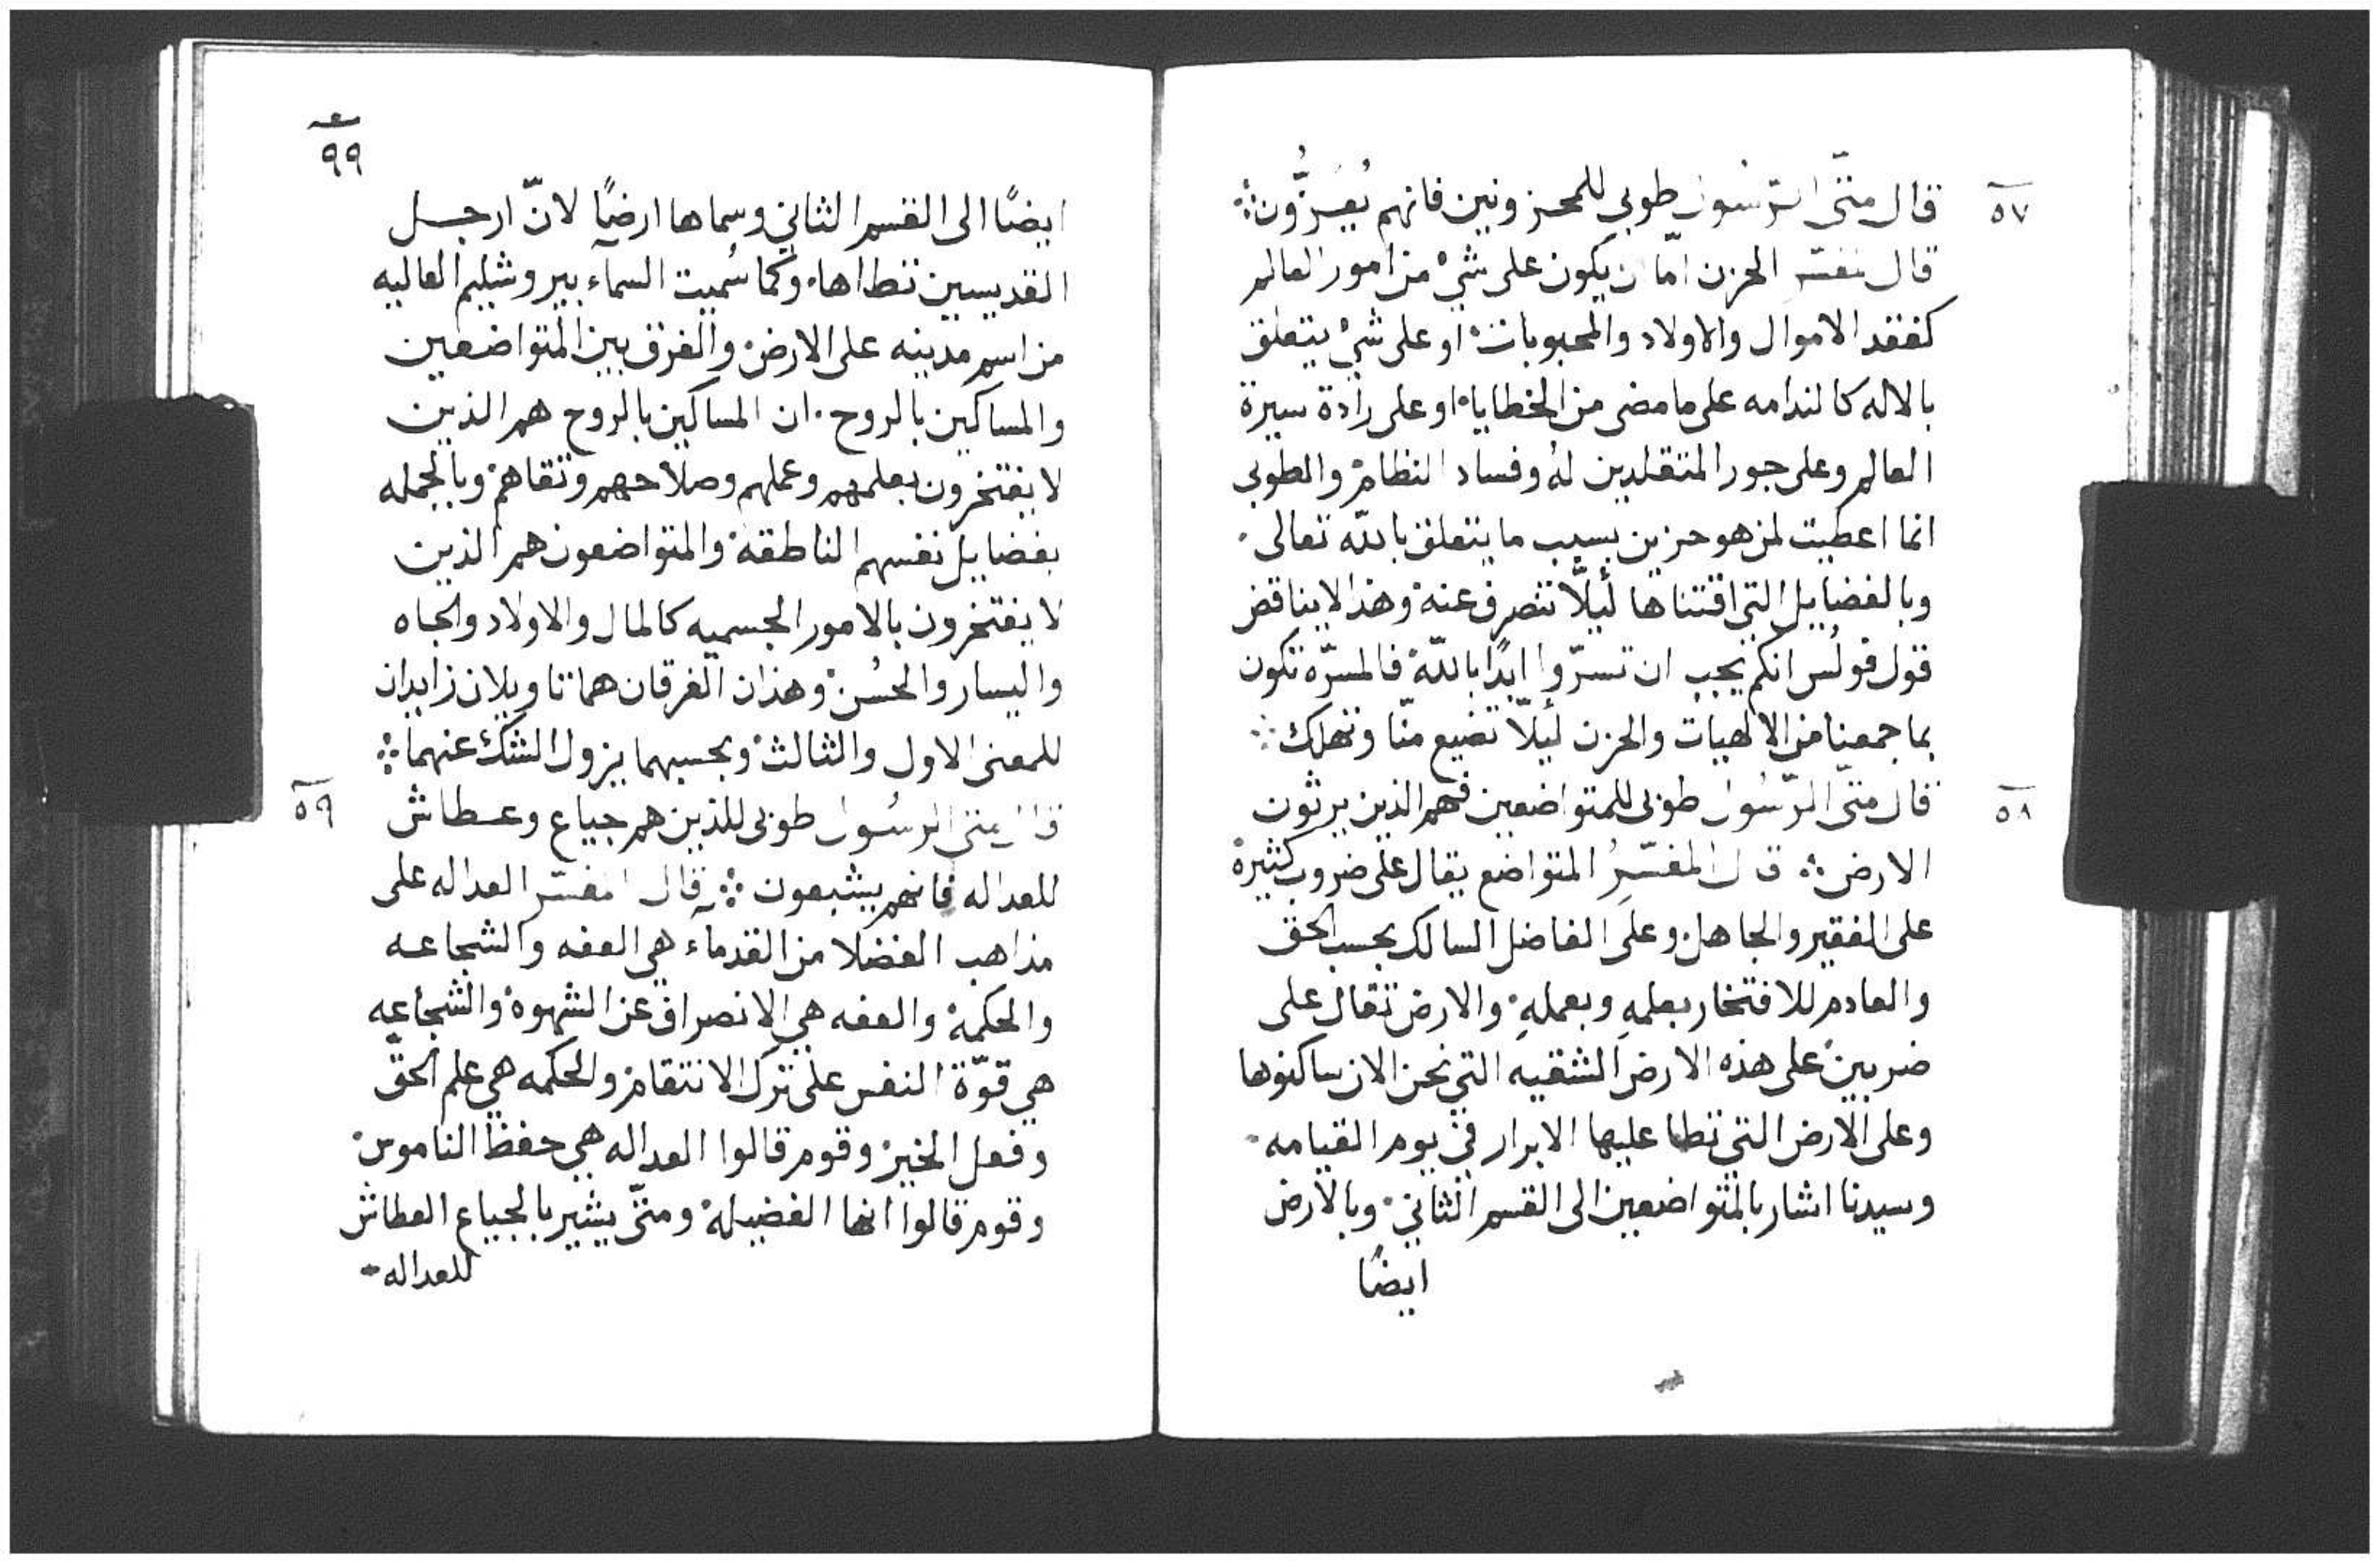 ٥٧
قال متّى الرّسُول طوبى للمحزونين فانهم يُعَزُّون ܀
قال مفسّر الحزن امّا ان يكون على شيْ من امور العالم
كفقد الاموال والاولاد والمحبوبات او على شيْ يتعلق
بالاله كالندامه على ما مضى من الخطايا او على رادة سيرة
العالم وعلى جور المتقلدين لهُ وفساد النظام والطوبى
انما اعطيت لمن هو حزين بسبب ما يتعلق بالله تعالى
وبالفضايل التي اقتناها ليَلّا تنصرف عنهُ وهذا لا يناقض
قول فولُس انكم يجب ان تسرّوا ابدًا بالله فالمسرّه تكون
بما جمعنا من الالهيات والحزن ليَلّا تضيع منّا وتهلك ܀
٥٨
قال متّى الرّسُول طوبى للمتواضعين فهم الذين يرثون
الارض ܀ قال المفسّرُ المتواضع يقال على ضروب كثيرة
على الفقير والجاهل وعلى الفاضل السالك بحسب الحق
والعادم للافتخار بعلمهِ وبعملهِ والارض تقال على
ضربين على هذه الارض الشقيه التي نحن الان ساكنوها
وعلى الارض التي تطا عليها الابرار في يوم القيامه
وسيدنا اشار بالمتواضعين الى القسم الثاني وبالارض
ايضًا
٩٩
ايضًا الى القسم الثاني وسماها ارضًا لانّ ارجل
القديسين تتطاها وكما سُميت السمآء بيروشليم العاليه
من اسم مدينه على الارض والفرق بين المتواضعين
والمساكين بالروح ان المساكين بالروح هم الذين
لا يفتخرون بعلمهم وعملهم وصلاحهم وتقاهم وبالجمله
بفضايل نفسهم الناطقه والمتواضعون هم الذين
لا يفتخرون بالامور الجسميه كالمال والاولاد والجاه
واليسار والحُسن وهذان الفرقان هما تاويلان زايدان
للمعنى الاول والثالث وبحسبهما يزول الشك عنهما ܀
٥٩
قال متى الرسُول طوبى للذين هم جياع وعطاش
للعداله فانهم يشبعون ܀ قال المفسّر العداله على
مذاهب الفضلا من القدمآء هي العفه والشجاعه
والحكمة والعفه هي الانصراف عن الشهوة والشجاعه
هي قوّة النفس على ترك الانتقام والحكمه هي علم الحقّ
وفعل الخير وقوم قالوا العداله هي حفظ الناموس
وقوم قالوا انها الفضيله ومتّى يشير بالجياع العطاش
للعداله